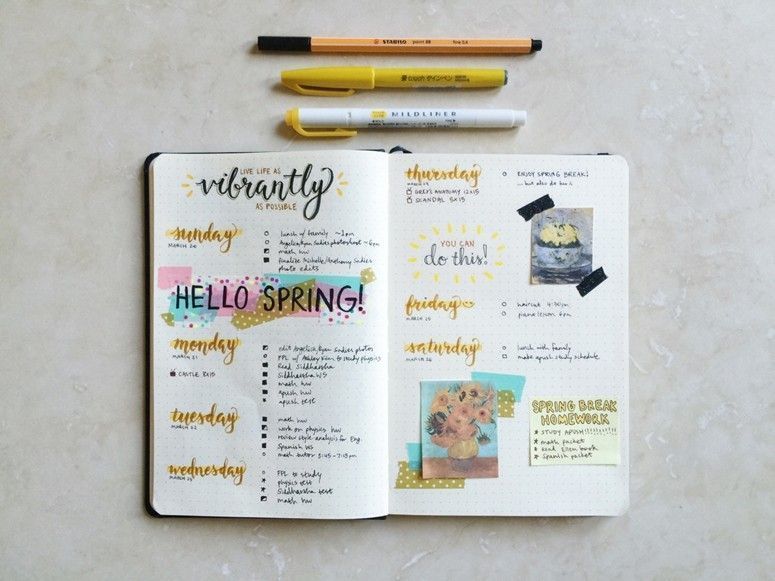 STABILO point 88 fine 0.4
touch
MILDLINER
LIVE LIFE AS
vibrantly
AS POSSIBLE
sunday
MARCH 20
lunch w/ family ~1pm
Angelica/Ryan Sadies photoshoot ~6pm
math hw
finalize Michelle/Anthony Sadies
photo edits
HELLO SPRING!
monday
MARCH 21
CASTLE 8x15
edit Angelica/Ryan Sadies photos
FPL w/ Ashley Kim to study physics
Read Siddhartha
Siddhartha WS
math hw
apush hw
apush test
tuesday
MARCH 22
math hw
work on physics hw
review style analysis for Eng.
Spanish WS
math tutor 5:45-7:15pm
wednesday
MARCH 23
FPL to study
physics test
Siddhartha test
math hw
thursday
MARCH 24
GREY'S ANATOMY 12x15
SCANDAL 5x15
ENJOY SPRING BREAK!
...but also do hw
YOU CAN
do this!
friday
MARCH 25
haircut 4:30pm
piano lesson 6pm
saturday
MARCH 26
lunch with family
make apush study schedule
SPRING BREAK
HOMEWORK
STUDY APUSH!!!!!!!!!
math packet
read Ellen book
Spanish packet